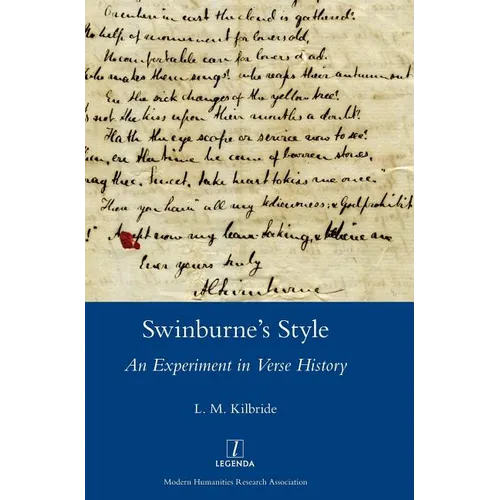 in east the cloud is gathered!
No help of monument for lovers old,
No comfortable care for lovers dead.
who makes them songs? who reaps their autumn out
Ere the sick changes of the yellow tree!
Is not the kiss upon their mouths a doubt?
Hath the eye scope or service now to see?
ere the time be come of barren stories,
thee, Sweet, take heart to kiss me once."
Here you have all my tediousness; & God prohibit
now my leave-taking, & believe me
Ever yours truly
ACSwinburne
Swinburne's Style
An Experiment in Verse History
L. M. Kilbride
LEGENDA
Modern Humanities Research Association